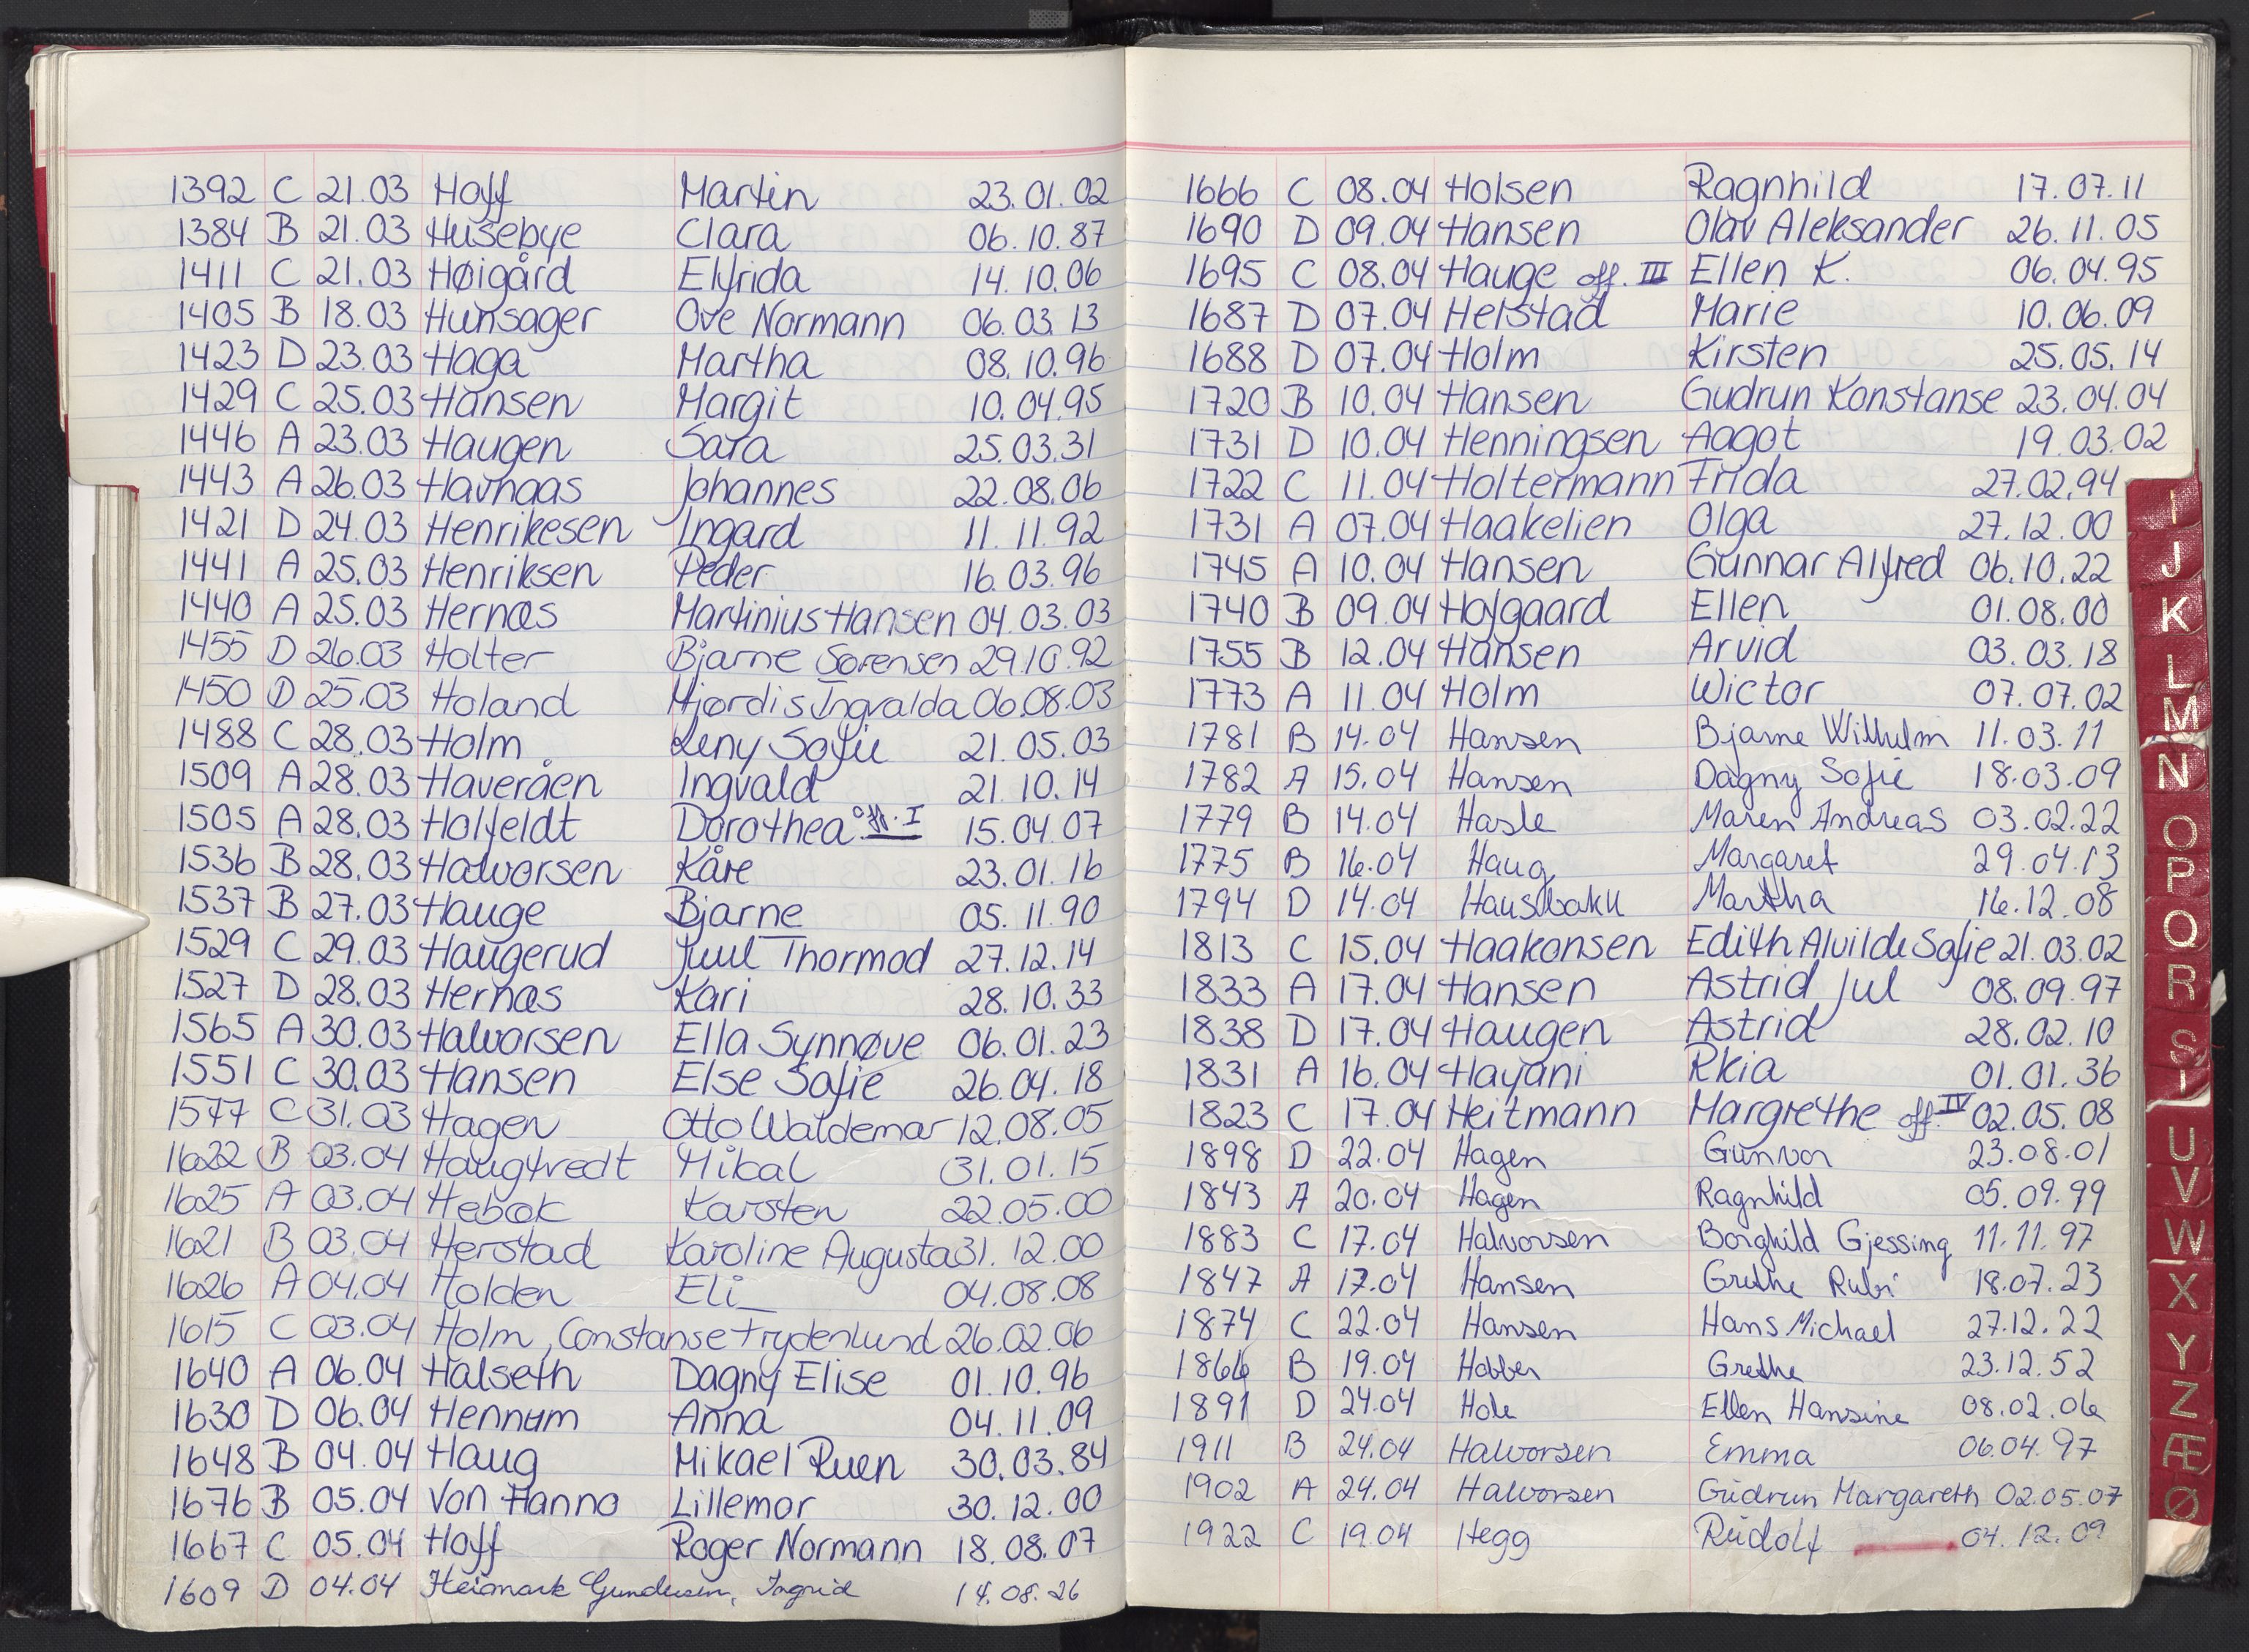 1392 C 21.03 Hoff Martin 23.01.02
1384 B 21.03 Husebye Clara 06.10.87
1411 C 21.03 Høigård Elfrida 14.10.06
1405 B 18.03 Hunsager Ove Normann 06.03.13
1423 D 23.03 Haga Martha 08.10.96
1429 C 25.03 Hansen Margit 10.04.95
1446 A 23.03 Haugen Sara 25.03.31
1443 A 26.03 Havnaas Johannes 22.08.06
1421 D 24.03 Henrikesen Ingard 11.11.92
1441 A 25.03 Henriksen Peder 16.03.96
1440 A 25.03 Hernæs Martinius Hansen 04.03.03
1455 D 26.03 Holter Bjarne Sørensen 29.10.92
1450 D 25.03 Holand Hjørdis Ingvalda 06.08.03
1488 C 28.03 Holm Leny Sofie 21.05.03
1509 A 28.03 Haveråen Ingvald 21.10.14
1505 A 28.03 Holfeldt Dorothea off. I 15.04.07
1536 B 28.03 Halvorsen Kåre 23.01.16
1537 B 27.03 Hauge Bjarne 05.11.90
1529 C 29.03 Haugerud Juul Thormod 27.12.14
1527 D 28.03 Hernæs Kari 28.10.33
1565 A 30.03 Halvorsen Ella Synnøve 06.01.23
1551 C 30.03 Hansen Else Sofie 26.04.18
1577 C 31.03 Hagen Otto Waldemar 12.08.05
1622 B 03.04 Haugtvedt Mikal 31.01.15
1625 A 03.04 Hebæk Karsten 22.05.00
1621 B 03.04 Herstad Karoline Augusta 31.12.00
1626 A 04.04 Holden Eli 04.08.08
1615 C 03.04 Holm, Constanse Frydenlund 26.02.06
1640 A 06.04 Halseth Dagny Elise 01.10.96
1630 D 06.04 Hennum Anna 04.11.09
1648 B 04.04 Haug Mikael Ruen 30.03.84
1676 B 05.04 Von Hanno Lillemor 30.12.00
1667 C 05.04 Hoff Roger Normann 18.08.07
1609 D 04.04 Heismark Gundersen, Ingrid 14.08.26
1666 C 08.04 Holsen Ragnhild 17.07.11
1690 D 09.04 Hansen Olav Aleksander 26.11.05
1695 C 08.04 Hauge off. III Ellen K. 06.04.95
1687 D 07.04 Helstad Marie 10.06.09
1688 D 07.04 Holm Kirsten 25.05.14
1720 B 10.04 Hansen Gudrun Konstanse 23.04.04
1731 D 10.04 Henningsen Aagot 19.03.02
1722 C 11.04 Holtermann Frida 27.02.94
1731 A 07.04 Haakelien Olga 27.12.00
1745 A 10.04 Hansen Gunnar Alfred 06.10.22
1740 B 09.04 Hofgaard Ellen 01.08.00
1755 B 12.04 Hansen Arvid 03.03.18
1773 A 11.04 Holm Wictor 07.07.02
1781 B 14.04 Hansen Bjarne Wilhelm 11.03.11
1782 A 15.04 Hansen Dagny Sofie 18.03.09
1779 B 14.04 Hasle Maren Andreas 03.02.22
1775 B 16.04 Haug Margaret 29.04.13
1794 D 14.04 Martha 16.12.08
1813 C 15.04 Haakonsen Edith Alvilde Sofie 21.03.02
1833 A 17.04 Hansen Astrid Jul 08.09.97
1838 D 17.04 Haugen Astrid 28.02.10
1831 A 16.04 Hayani Rkia 01.01.36
1823 C 17.04 Heitmann Margrethe off. IV 02.05.08
1898 D 22.04 Hagen Gunvor 23.08.01
1843 A 20.04 Hagen Ragnhild 05.09.99
1883 C 17.04 Halvorsen Borghild Gjessing 11.11.97
1847 A 17.04 Hansen Grethe Rubi 18.07.23
1874 C 22.04 Hansen Hans Michael 27.12.22
1866 B 19.04 Hobber Grethe 23.12.52
1891 D 24.04 Hole Ellen Hansine 08.02.06
1911 B 24.04 Halvorsen Emma 06.04.97
1902 A 24.04 Halvorsen Gudrun Margareth 02.05.07
1922 C 19.04 Hegg Rudolf 04.12.09
I
J
K
L
M
N
O
P
Q
R
S
U
V
W
X
Y
Z
Æ
Ø